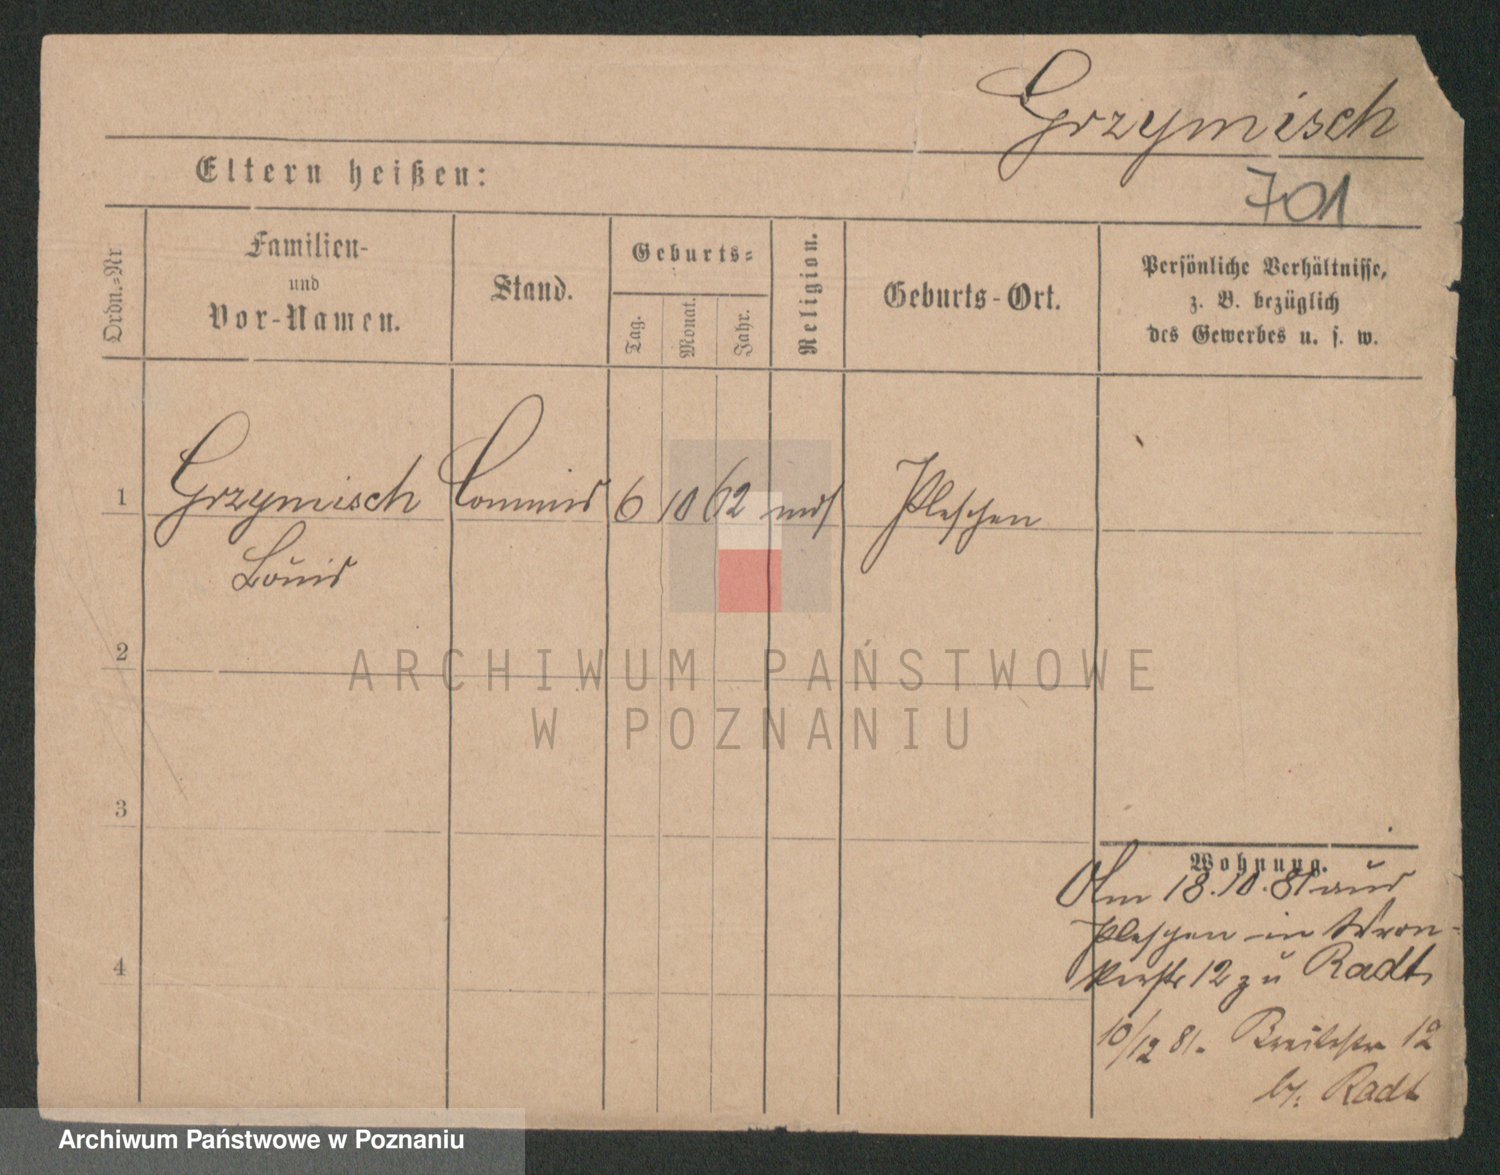 Grzymisch
701
Eltern heißen:
Ordn.=Nr
Familien-
und
Vor-Namen.
Stand.
Geburts=
Tag.
Monat.
Jahr.
Religion.
Geburts-Ort.
Persönliche Verhältnisse,
z. B. bezüglich
des Gewerbes u. s. w.
1
Grzymisch
Louis
Commis
6
10
62
mos
Pleschen
2
3
4
Wohnung.
Am 18.10.81 aus
Pleschen in Wron-
kerstr 12 zu Radt
10/12 81. Breitestr 12
b/. Radt
ARCHIWUM PAŃSTWOWE
W POZNANIU
Archiwum Państwowe w Poznaniu